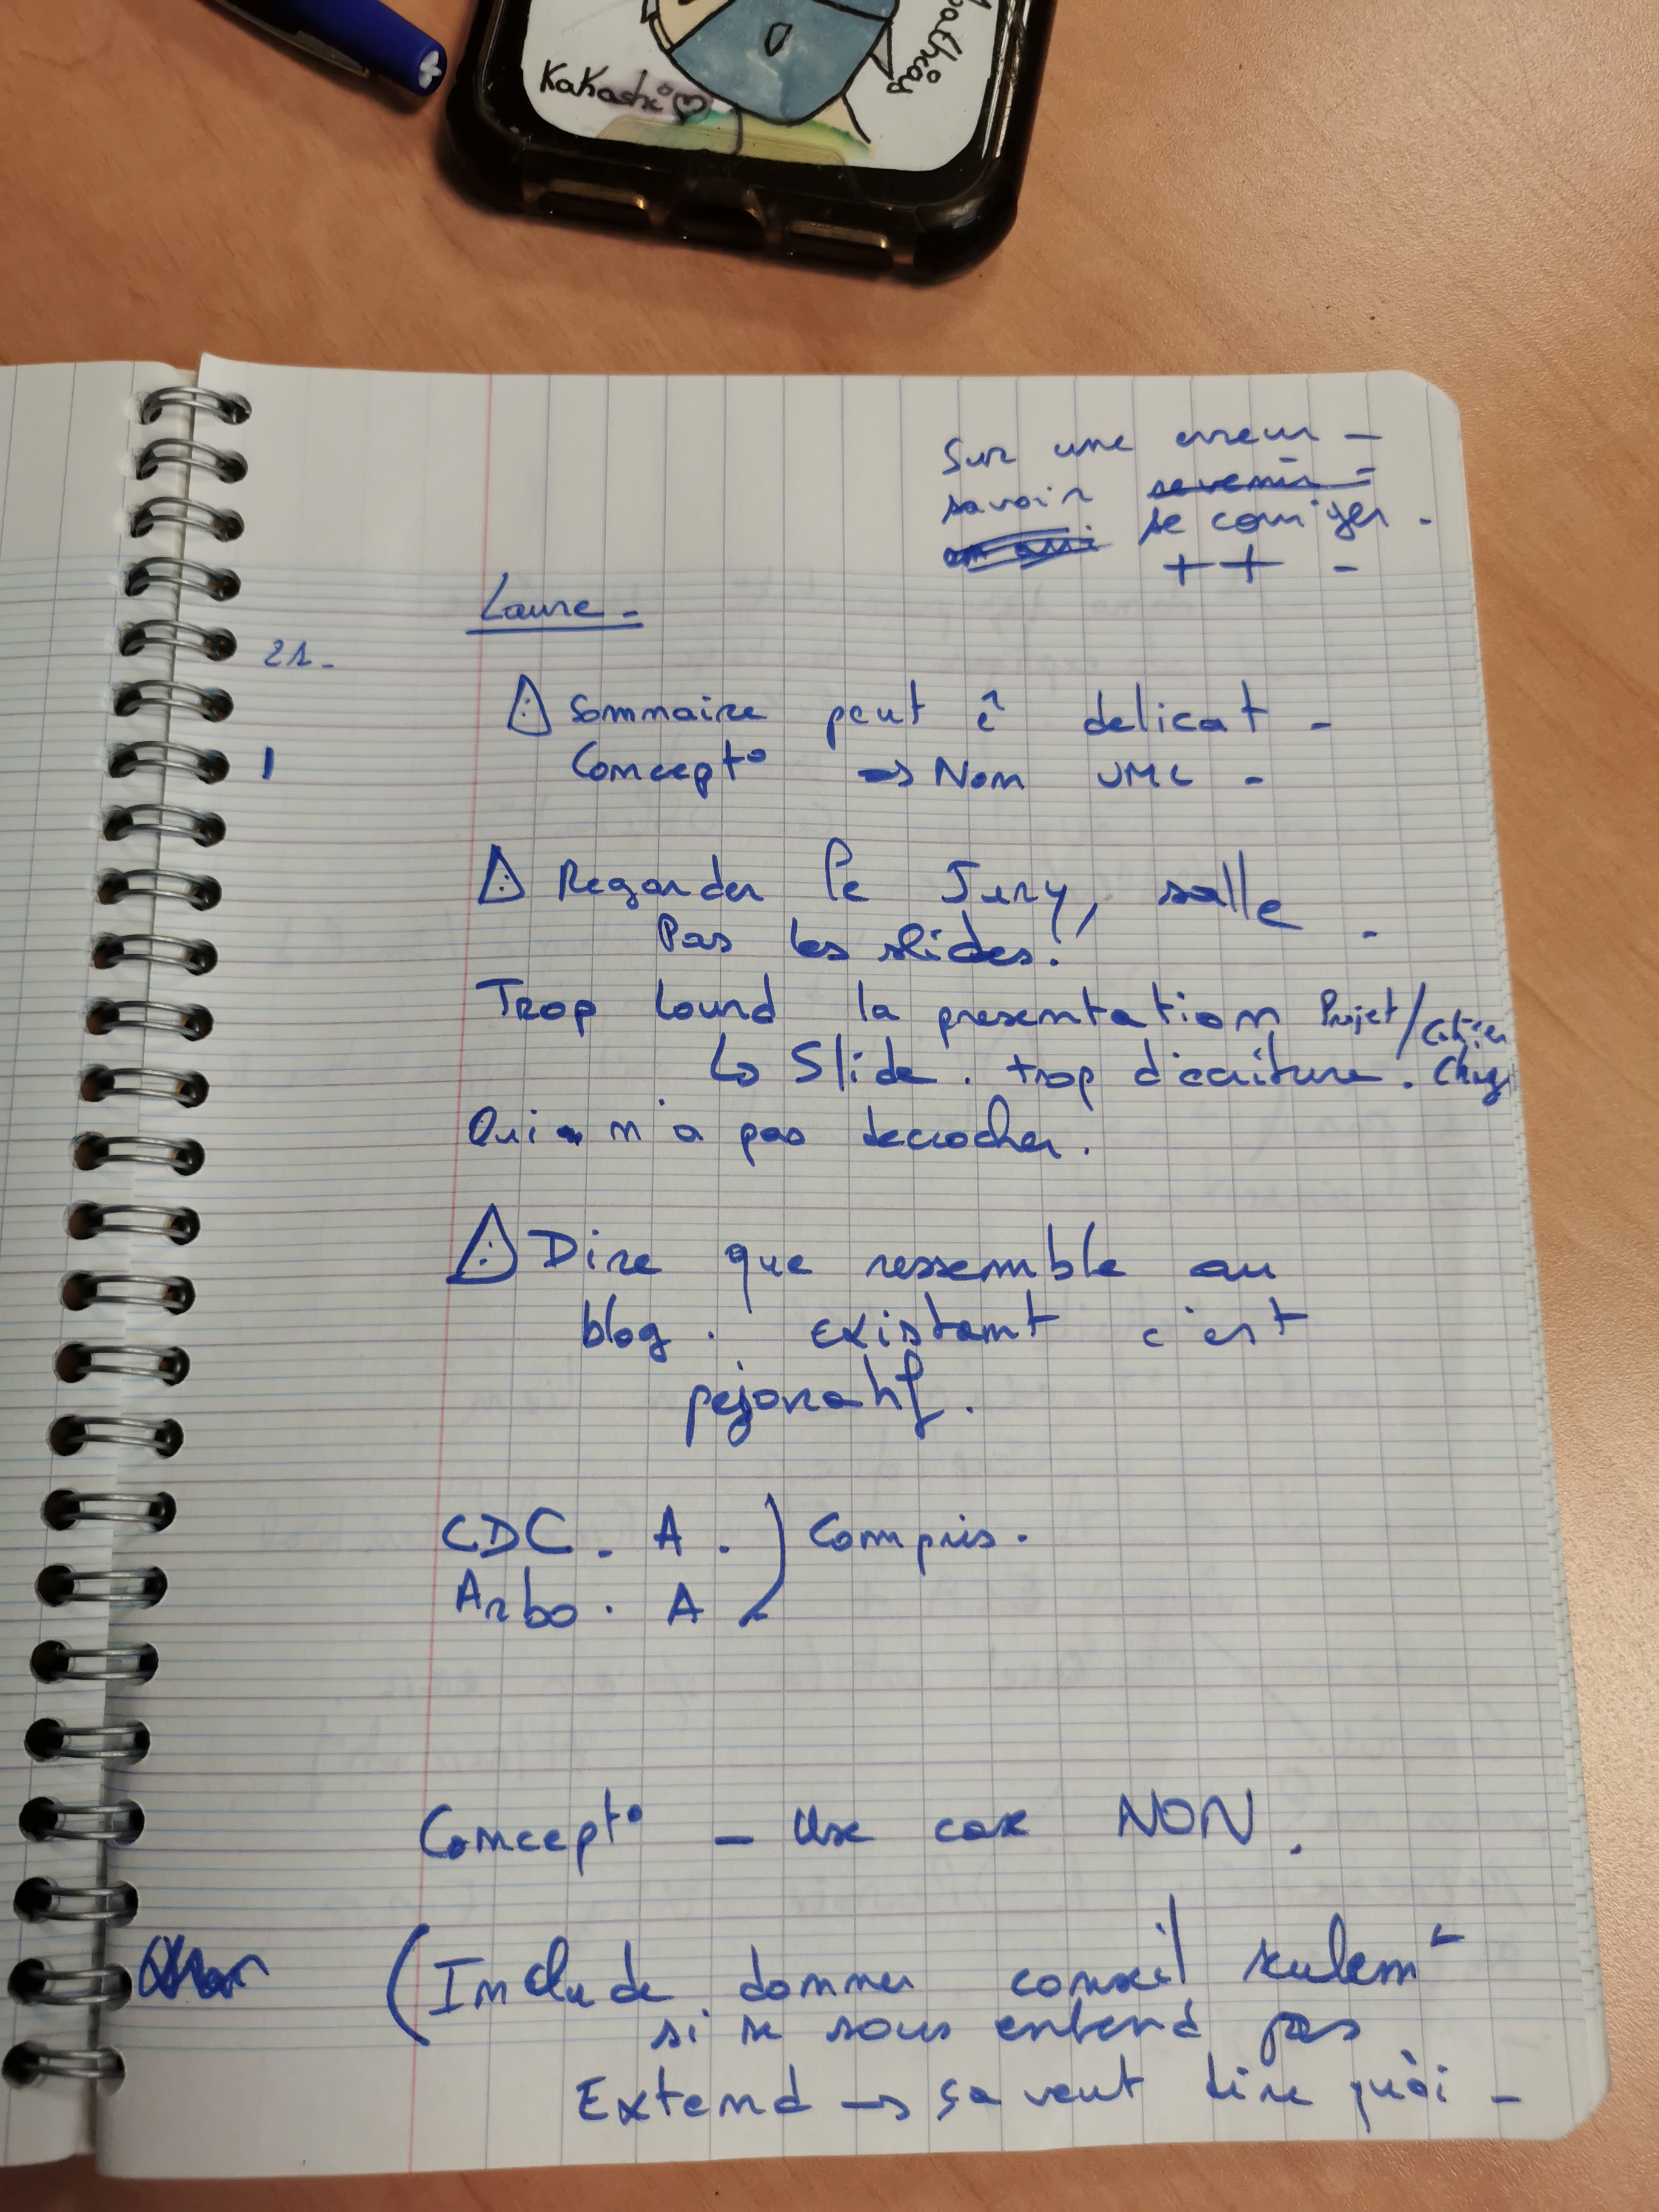 Kakashi
Sur une erreur -
savoir revenir -
se corriger.
++ -
Laure -
21-
Sommaire peut ê delicat -
Concept° → Non UML -
Regarder le Jury, salle.
Pas les slides.
Trop lourd la presentation Projet/Cahier
↳ Slide. trop d'ecriture. Chrg
Qui n'a pas decrocher.
Dire que ressemble au
blog. existant c'est
pejoratif.
CDC. A. ) Compris.
Arbo. A
Concept° - Use case NON.
(Include. donner conseil seulemt
si se sous entend pas
Extend → sa veut dire quoi -